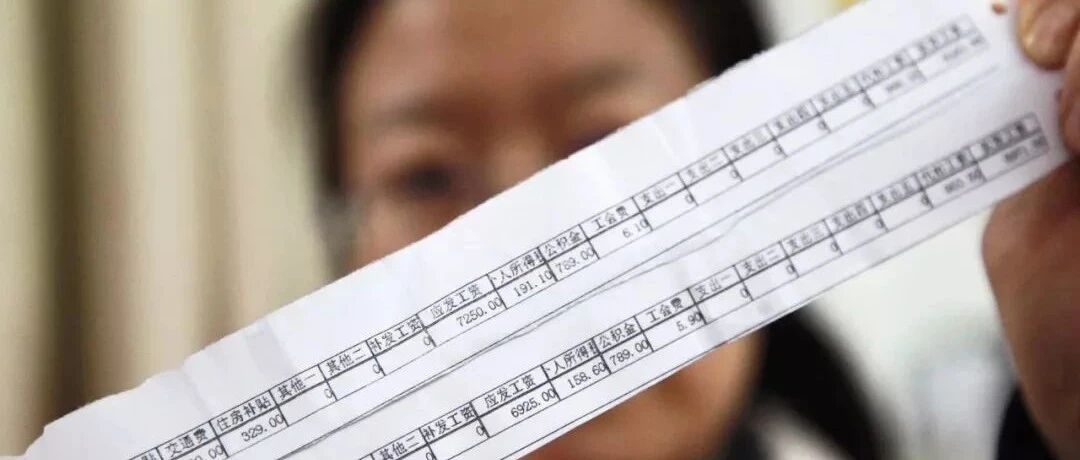 交通费 住房补贴 其他一 其他二 补发工资 应发工资 人所得税 公积金 工会费 支出一 支出二 支出三 支出四 支出五 代扣工税 实发工资
329.00 0 0 0 7250.00 191.10 789.00 6.10 0 0 0 0 0
其他二 补发工资 应发工资 人所得税 公积金 工会费 支出一 支出二 支出三 支出四 支出五 代扣工税 实发工资
0 0 6925.00 158.60 789.00 5.90 0 0 0 0 0